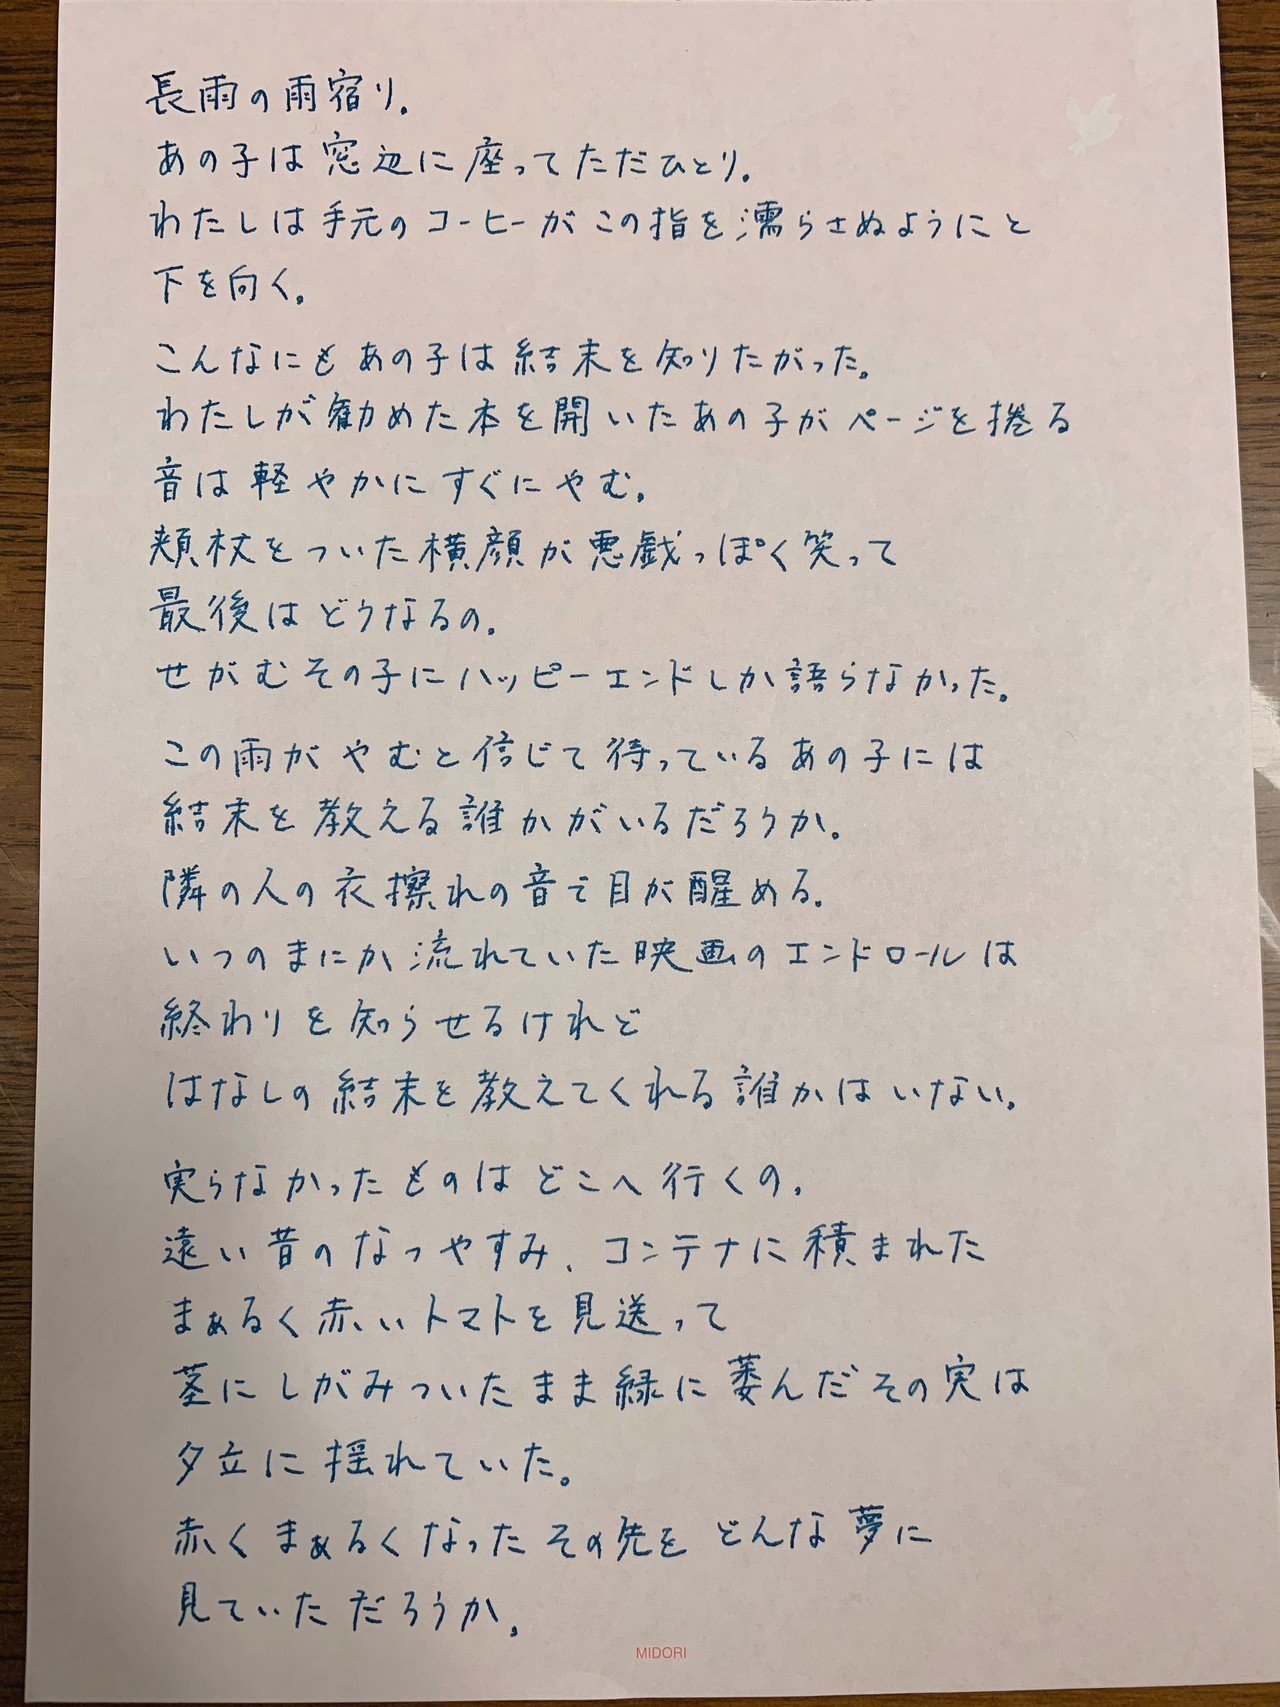 長雨の雨宿り。
あの子は窓辺に座ってただひとり。
わたしは手元のコーヒーがこの指を濡らさぬようにと
下を向く。
こんなにもあの子は結末を知りたがった。
わたしが勧めた本を開いたあの子がページを捲る
音は軽やかにすぐにやむ。
頬杖をついた横顔が悪戯っぽく笑って
最後はどうなるの。
せがむその子にハッピーエンドしか語らなかった。
この雨がやむと信じて待っているあの子には
結末を教える誰かがいるだろうか。
隣の人の衣擦れの音で目が醒める。
いつのまにか流れていた映画のエンドロールは
終わりを知らせるけれど
はなしの結末を教えてくれる誰かはいない。
実らなかったものはどこへ行くの。
遠い昔のなつやすみ、コンテナに積まれた
まぁるく赤いトマトを見送って
茎にしがみついたまま緑に萎んだその実は
夕立に揺れていた。
赤くまぁるくなったその先をどんな夢に
見ていただろうか。
MIDORI